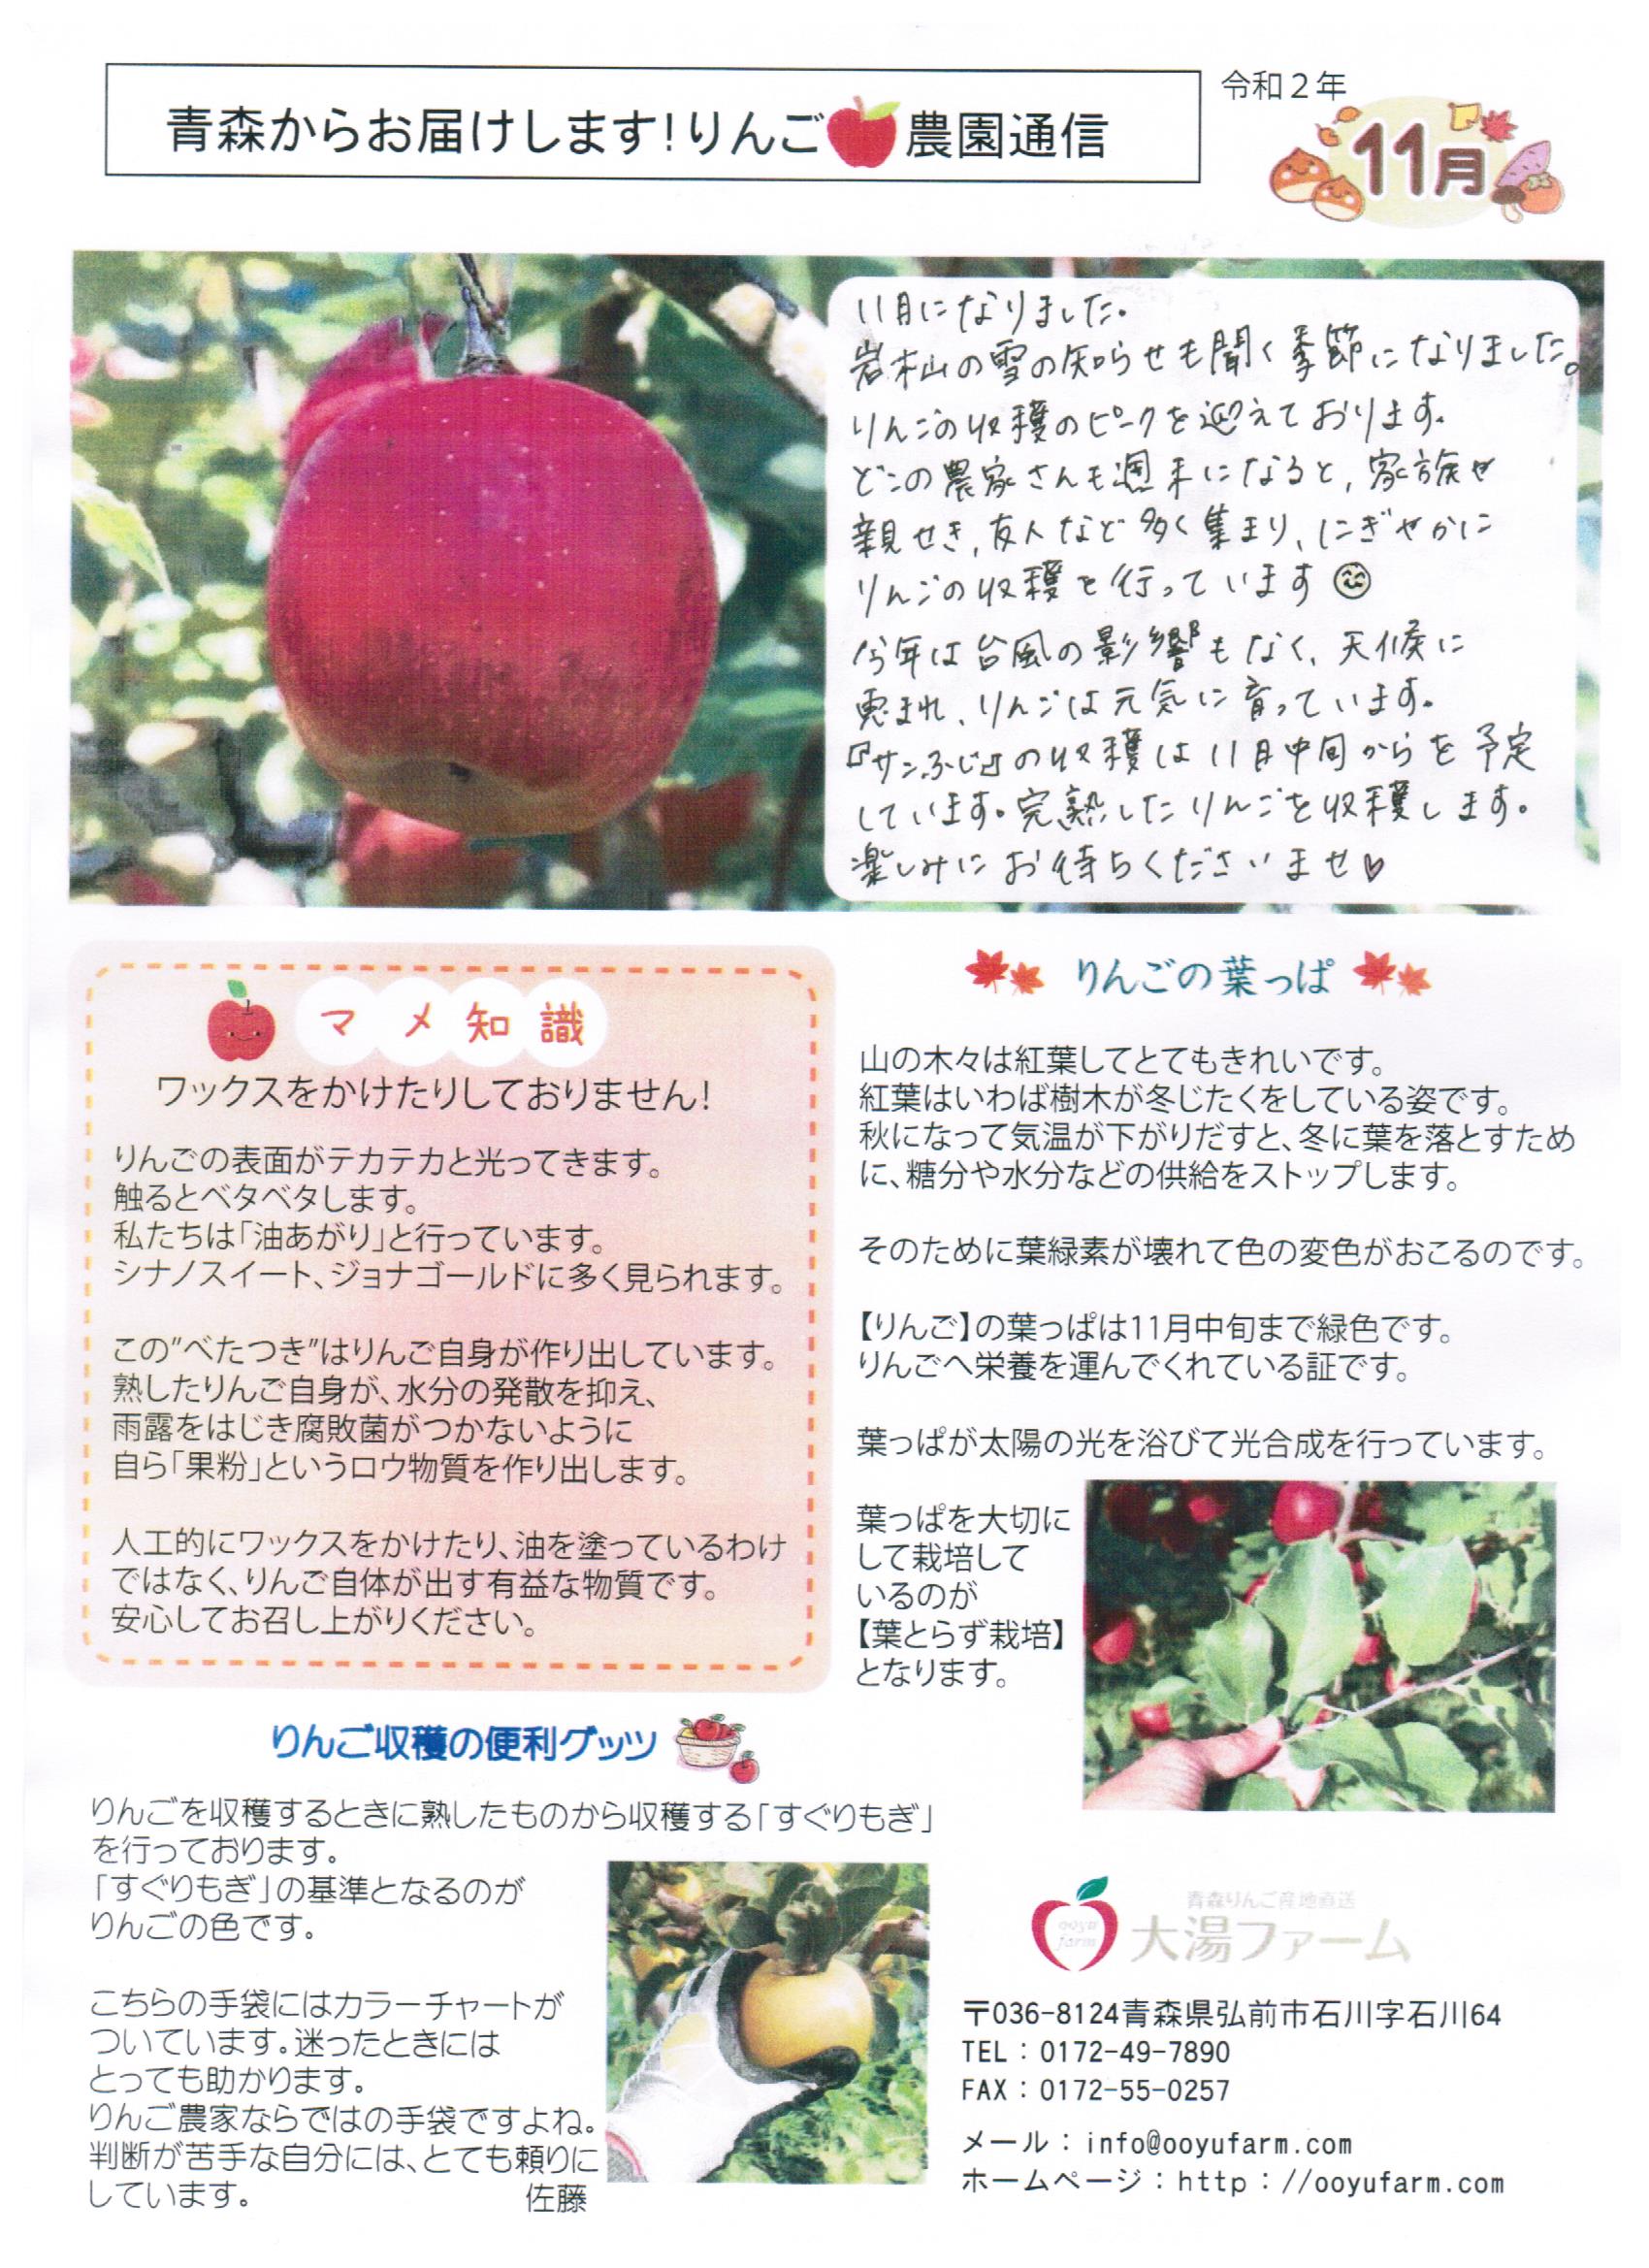 青森からお届けします!りんご農園通信
令和2年
11月
11月になりました。
岩木山の雪の知らせも聞く季節になりました。
りんごの収穫のピークを迎えております。
どこの農家さんも週末になると、家族や
親せき、友人など多く集まり、にぎやかに
りんごの収穫を行っています
今年は台風の影響もなく、天候に
恵まれ、りんごは元気に育っています。
『サンふじ』の収穫は11月中旬からを予定
しています。完熟したりんごを収穫します。
楽しみにお待ちくださいませ♡
マメ知識
ワックスをかけたりしておりません!
りんごの表面がテカテカと光ってきます。
触るとベタベタします。
私たちは「油あがり」と行っています。
シナノスイート、ジョナゴールドに多く見られます。
この"べたつき"はりんご自身が作り出しています。
熟したりんご自身が、水分の発散を抑え、
雨露をはじき腐敗菌がつかないように
自ら「果粉」というロウ物質を作り出します。
人工的にワックスをかけたり、油を塗っているわけ
ではなく、りんご自体が出す有益な物質です。
安心してお召し上がりください。
りんごの葉っぱ
山の木々は紅葉してとてもきれいです。
紅葉はいわば樹木が冬じたくをしている姿です。
秋になって気温が下がりだすと、冬に葉を落とすため
に、糖分や水分などの供給をストップします。
そのために葉緑素が壊れて色の変色がおこるのです。
【りんご】の葉っぱは11月中旬まで緑色です。
りんごへ栄養を運んでくれている証です。
葉っぱが太陽の光を浴びて光合成を行っています。
葉っぱを大切に
して栽培して
いるのが
【葉とらず栽培】
となります。
りんご収穫の便利グッツ
りんごを収穫するときに熟したものから収穫する「すぐりもぎ」
を行っております。
「すぐりもぎ」の基準となるのが
りんごの色です。
こちらの手袋にはカラーチャートが
ついています。迷ったときには
とっても助かります。
りんご農家ならではの手袋ですよね。
判断が苦手な自分には、とても頼りに
しています。
佐藤
ooyu
farm
青森りんご産地直送
大湯ファーム
〒036-8124青森県弘前市石川字石川64
TEL:0172-49-7890
FAX:0172-55-0257
メール:info@ooyufarm.com
ホームページ:http://ooyufarm.com